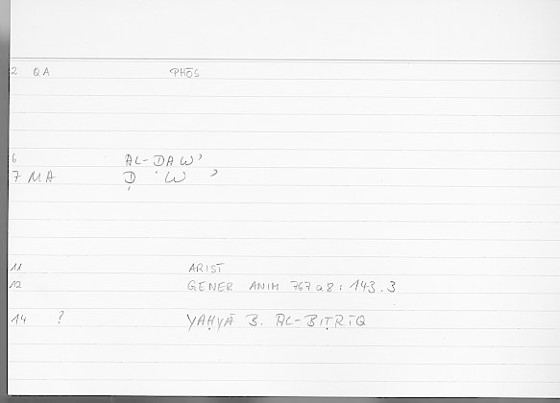 2 QA PHŌS
6 AL-ḌAW'
7 MA Ḍ W '
11 ARIST
12 GENER ANIM 767a8: 143.3
14 ? YAḤYĀ B. AL-BIṬRĪQ